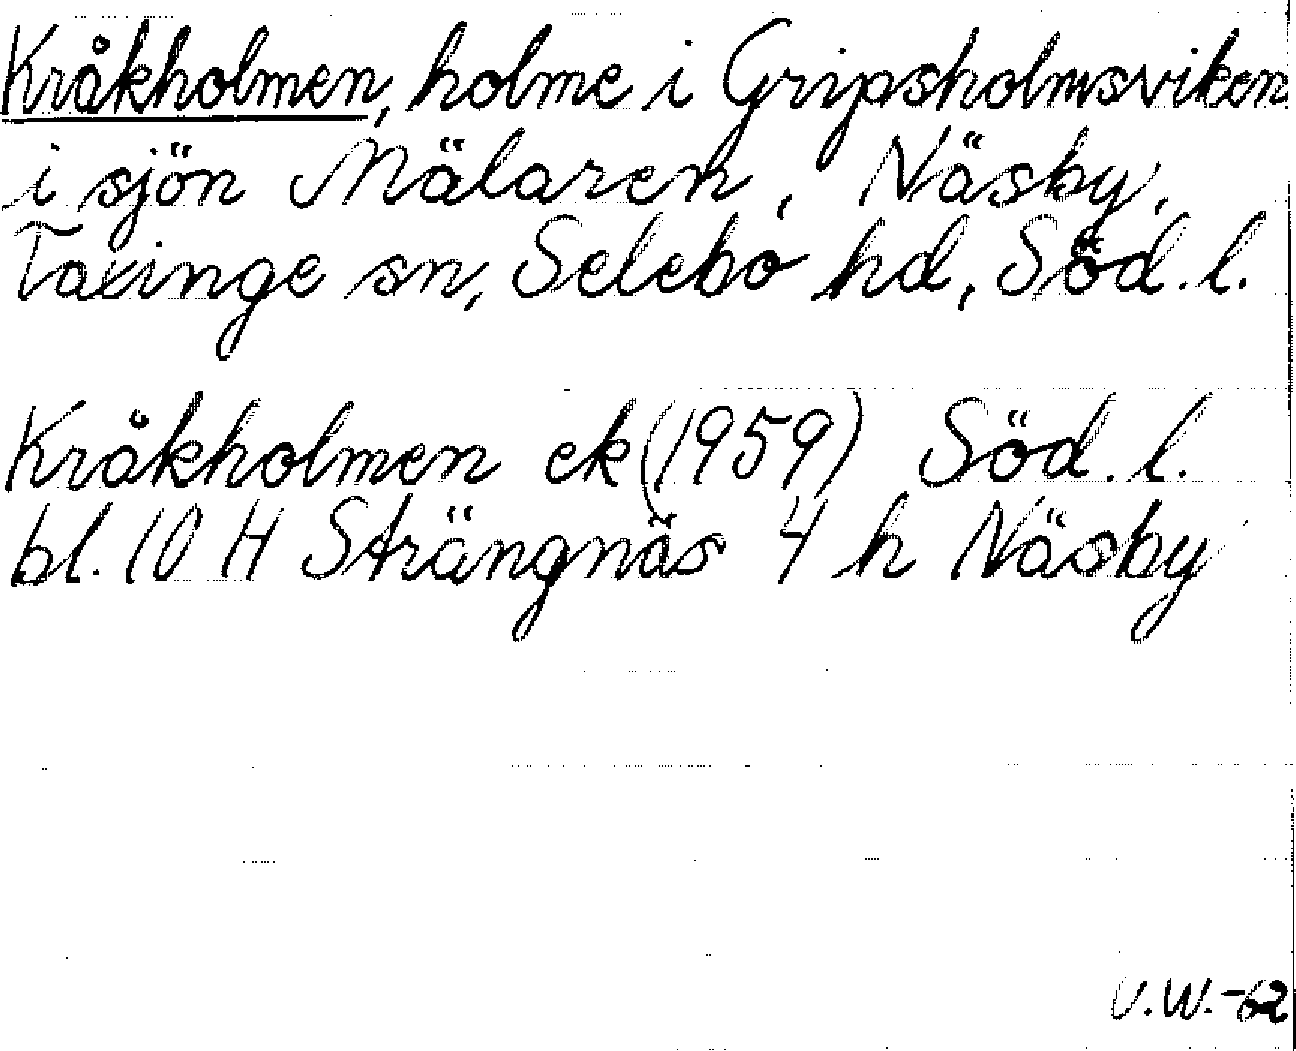 Kråkholmen, holme i Gripsholmsviken
i sjön Mälaren, Näsby,
Taxinge sn, Selebo hd, Söd. l.
Kråkholmen ek (1959) Söd. l.
bl. 10 H Strängnäs 4 h Näsby
V.W.-62